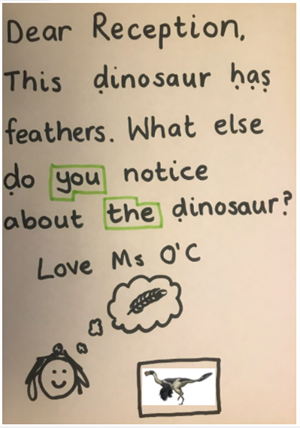 Dear Reception,
This dinosaur has
feathers. What else
do you notice
about the dinosaur?
Love Ms O'C